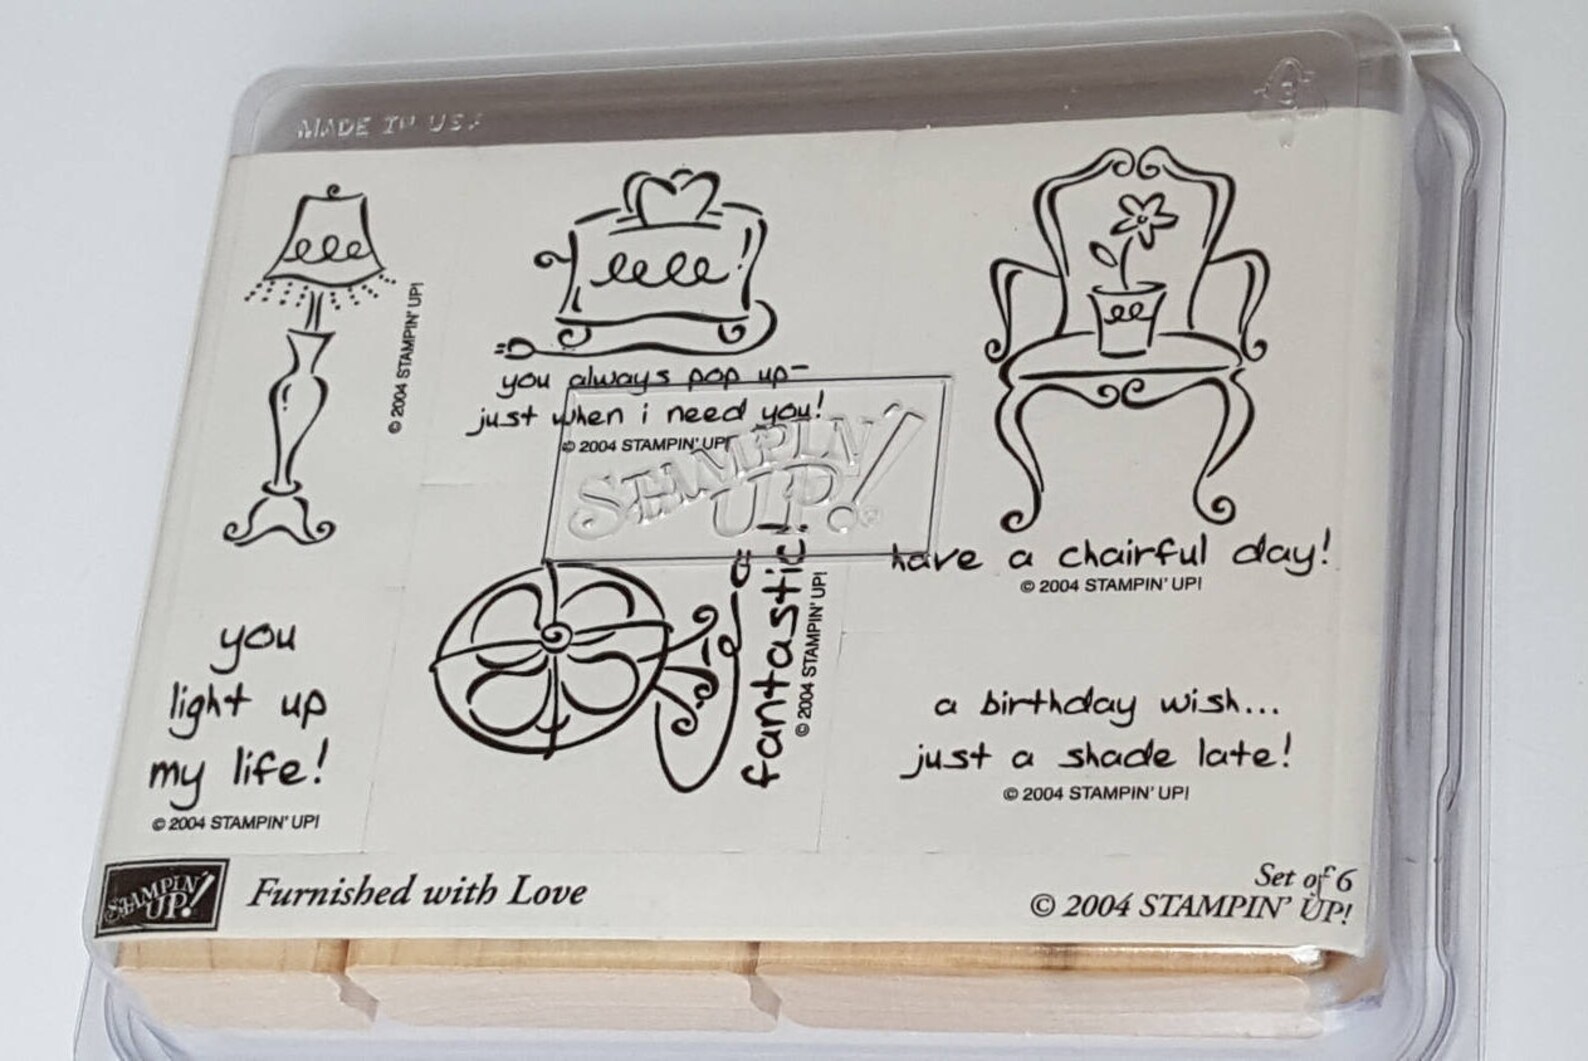 MADE IN USA
© 2004 STAMPIN' UP!
you always pop up-
just when i need you!
© 2004 STAMPIN' UP!
STAMPIN'
UP!
have a chairful day!
© 2004 STAMPIN' UP!
you
light up
my life!
© 2004 STAMPIN' UP!
fantastic!
© 2004 STAMPIN' UP!
a birthday wish...
just a shade late!
© 2004 STAMPIN' UP!
STAMPIN'
UP!
Furnished with Love
Set of 6
© 2004 STAMPIN' UP!